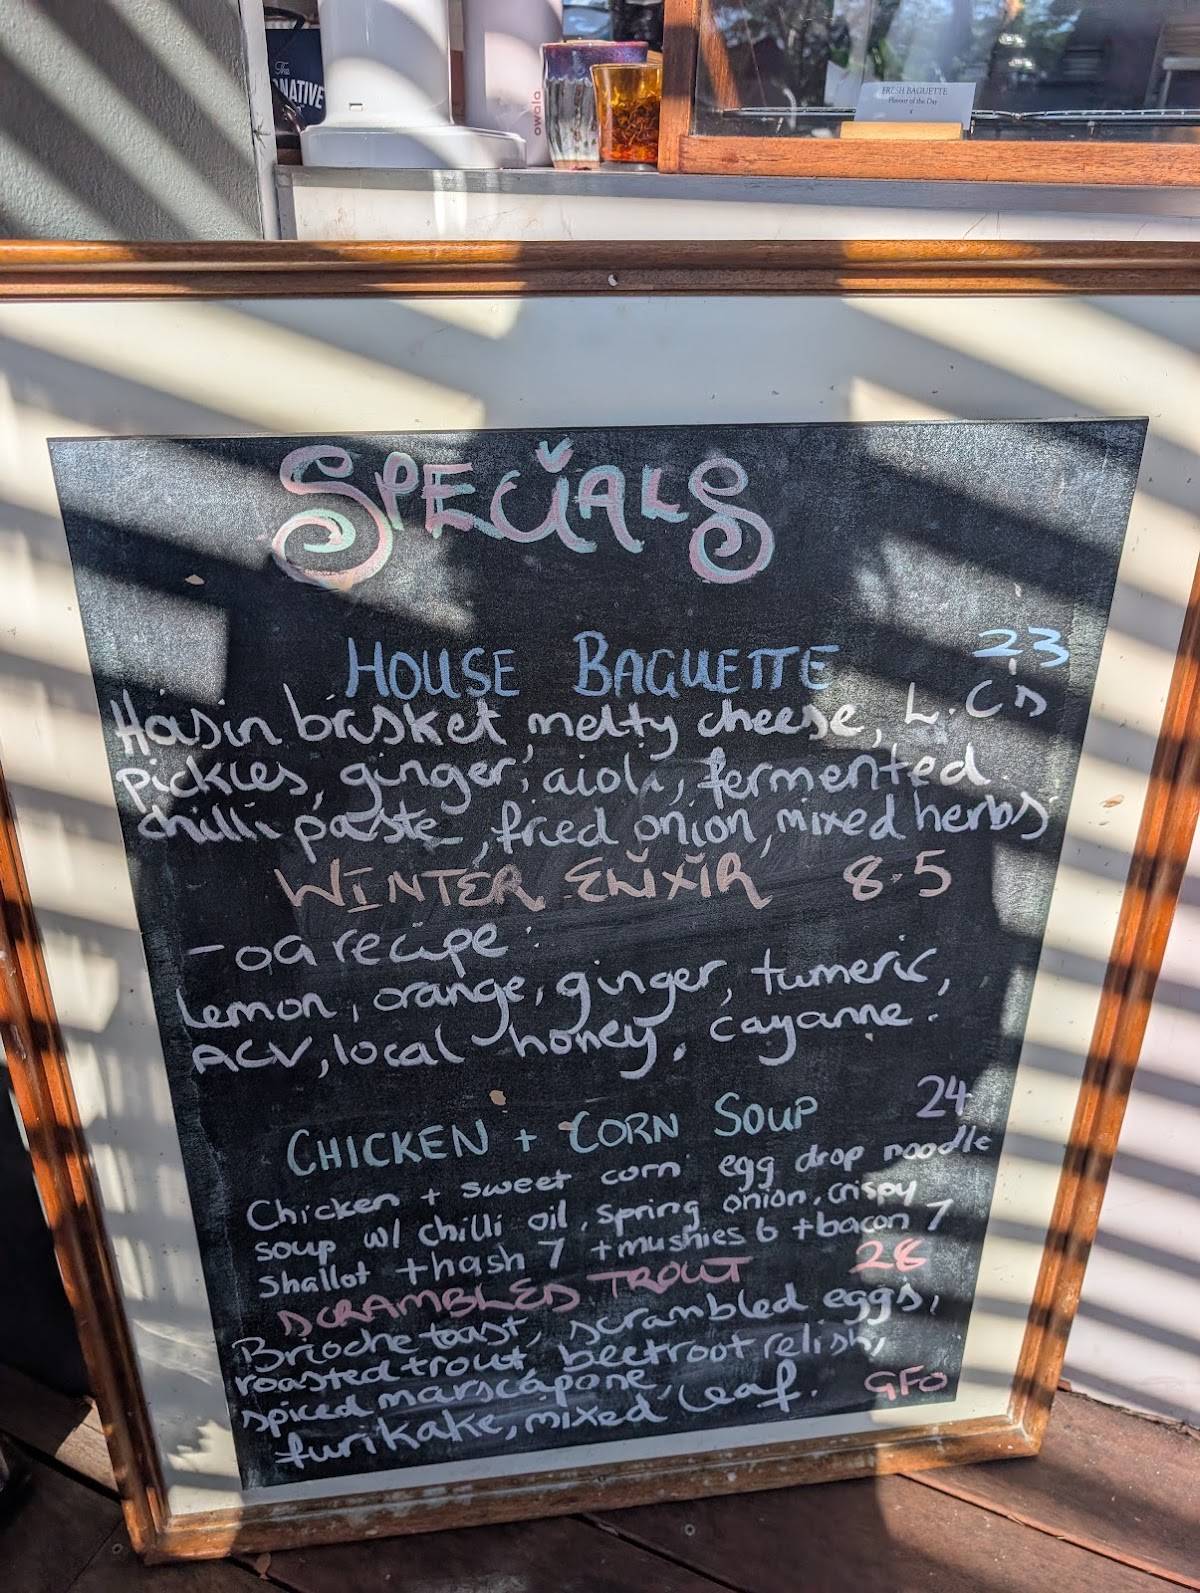 The
NATIVE
owala
FRESH BAGUETTE
Flavour of the Day
SPECIALS
HOUSE BAGUETTE 23
brisket, melty cheese, L.C's
pickles, ginger, aioli, fermented
chilli paste, fried onion, mixed herbs
WINTER ELIXIR 8.5
- OG recipe:
Lemon, orange, ginger, tumeric,
ACV, local honey, cayanne.
CHICKEN + CORN SOUP 24
Chicken + sweet corn egg drop noodle
soup w/ chilli oil, spring onion, crispy
shallot +hash 7 +mushies 6 +bacon 7
SCRAMBLED TROUT 28
Brioche toast, scrambled eggs,
roasted trout beetroot relish,
spiced marscapone,
furikake, mixed leaf. GFO